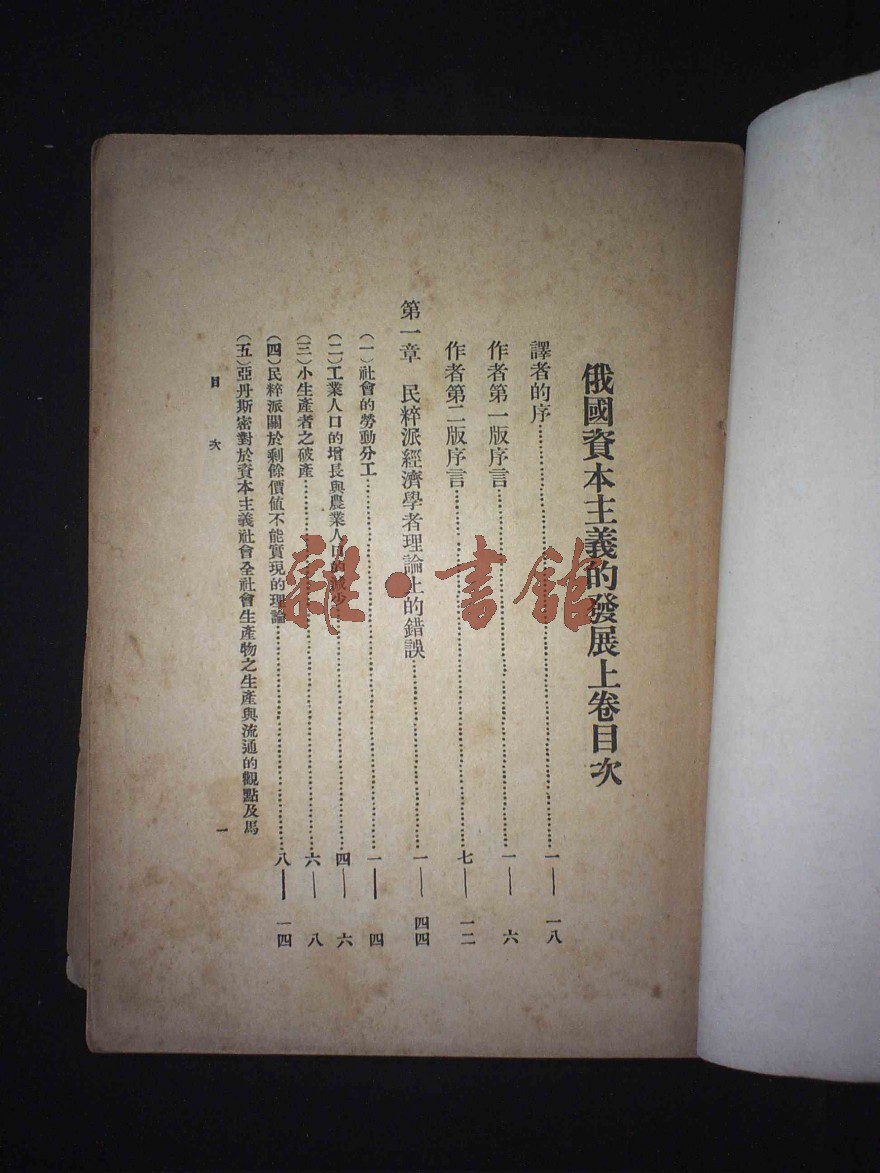 俄國資本主義的發展上卷目次
譯者的序……一——一八
作者第一版序言……一——六
作者第二版序言……七——一二
第一章 民粹派經濟學者理論上的錯誤……一——四四
(一)社會的勞動分工……一——四
(二)工業人口的增長與農業人口的減少……四——六
(三)小生產者之破產……六——八
(四)民粹派關於剩餘價值不能實現的理論……八——一四
(五)亞丹斯密對於資本主義社會全社會生產物之生產與流通的觀點及馬
目 次 一
雜·書館